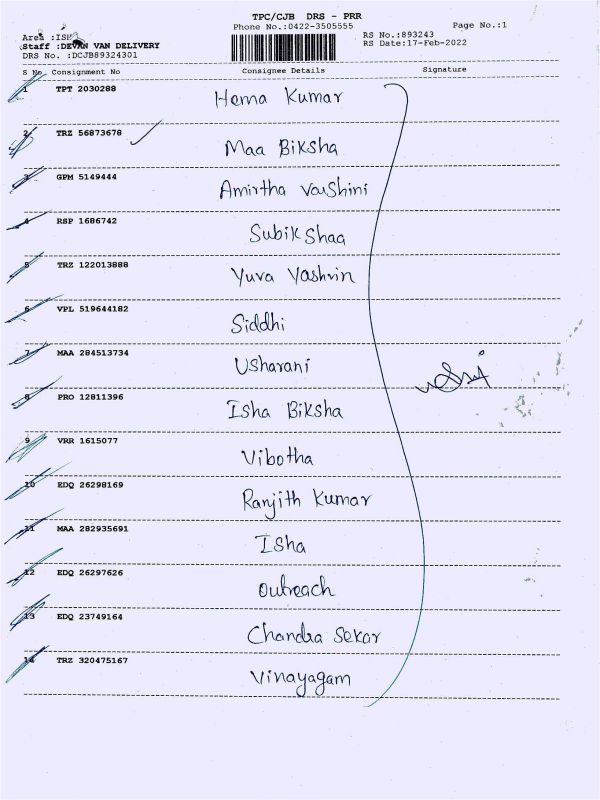 TPC/CJB DRS - PRR
Phone No.:0422-3505555
Page No.:1
RS No.:893243
RS Date:17-Feb-2022
Area :ISH
Staff :DEVAN VAN DELIVERY
DRS No. :DCJB89324301
S No Consignment No Consignee Details Signature
1 TPT 2030288 Hema Kumar
2 TRZ 56873678 Maa Biksha
3 GPM 5149444 Amirtha Varshini
4 RSP 1686742 Subik Shaa
5 TRZ 122013888 Yuva Yashvin
6 VPL 519644182 Siddhi
7 MAA 284513734 Usharani
8 PRO 12811396 Isha Biksha
9 VRR 1615077 Vibotha
10 EDQ 26298169 Ranjith Kumar
11 MAA 282935691 Isha
12 EDQ 26297626 Outreach
13 EDQ 23749164 Chandra Sekar
14 TRZ 320475167 Vinayagam